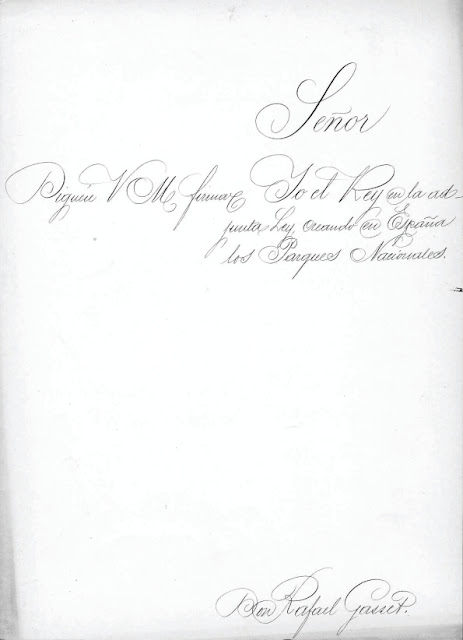 Señor
Dígnese V M, firmar Yo el Rey en la ad-
junta Ley, creando en España
los Parques Nacionales.
Don Rafael Gasset.